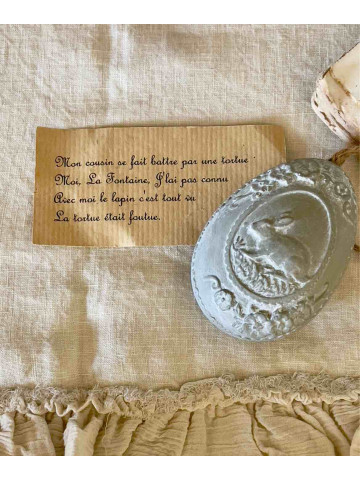 Mon cousin se fait battre par une tortue
Moi, La Fontaine, J'lai pas connu
Avec moi le lapin c'est tout vu
La tortue était foutue.